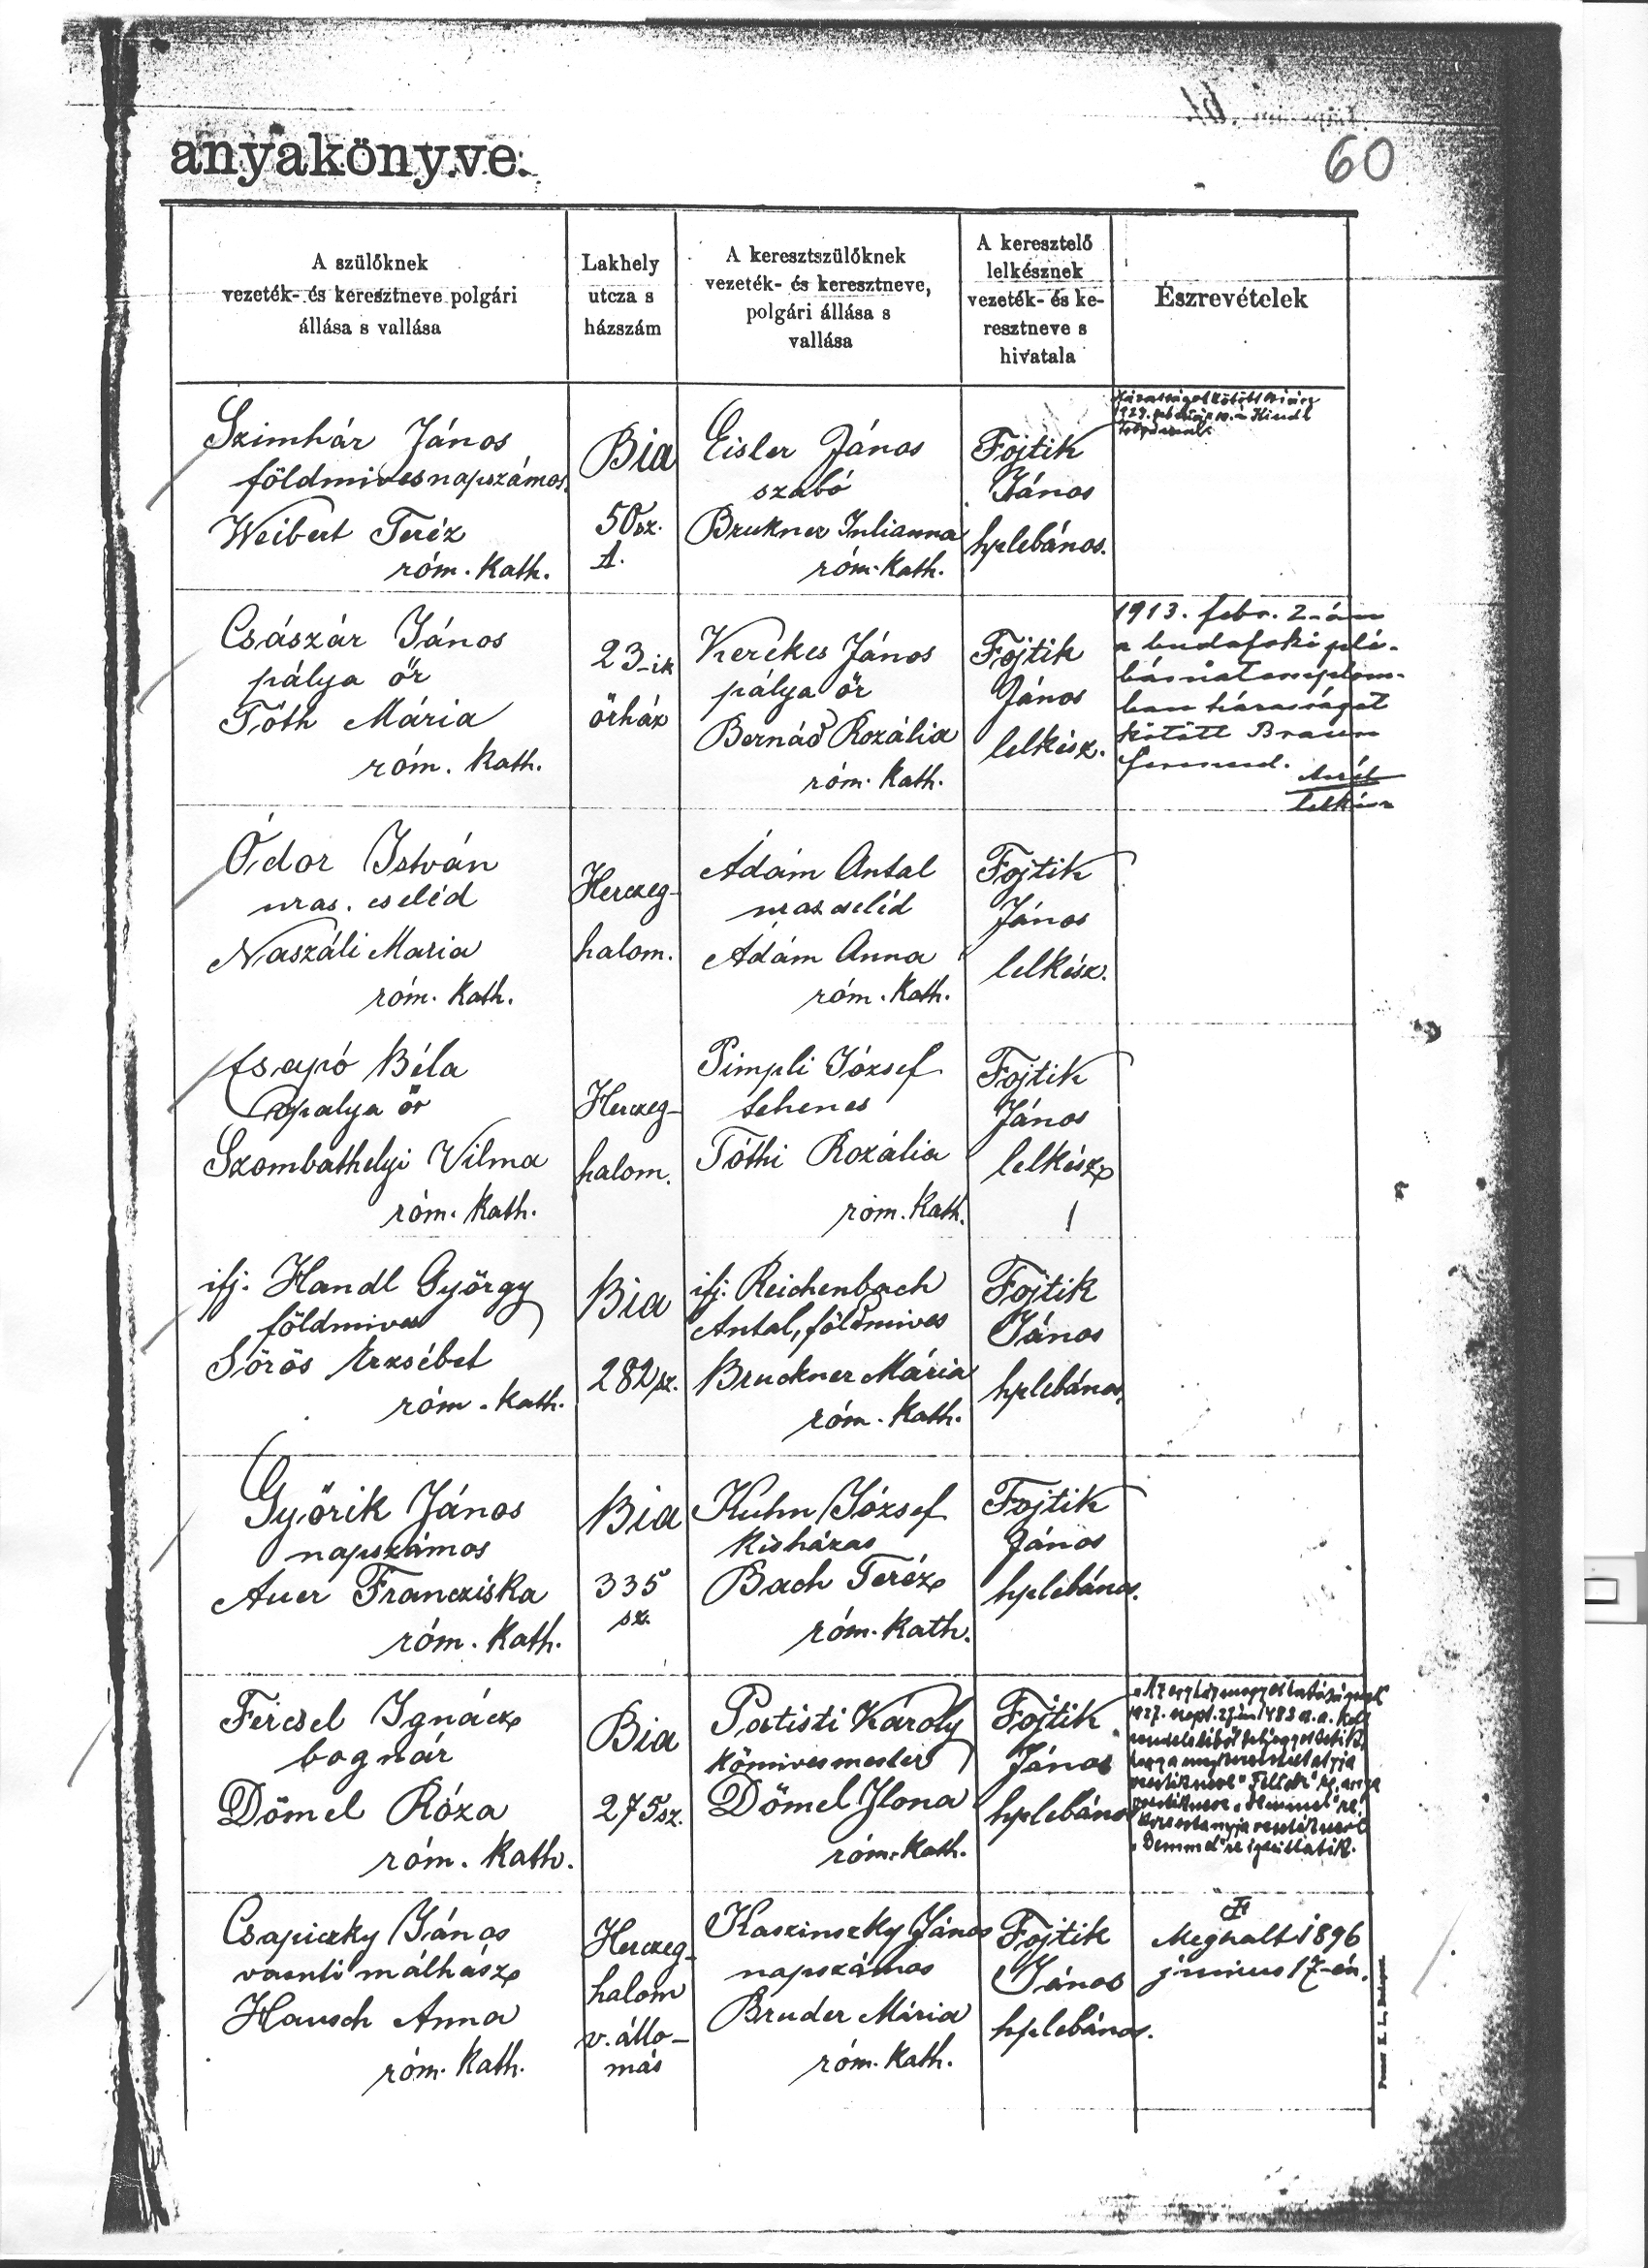 anyakönyve.
60
A szülőknek
vezeték- és keresztneve polgári
állása s vallása
Lakhely
utcza s
házszám
A keresztszülőknek
vezeték- és keresztneve,
polgári állása s
vallása
A keresztelő
lelkésznek
vezeték- és ke-
resztneve s
hivatala
Észrevételek
Szimhár János
földmives napszámos
Weibert Teréz
róm. kath.
Bia
50 sz.
Eisler János
szabó
Brukner Julianna
róm. kath.
Fojtik
János
hplebános.
Császár János
pálya őr
Tóth Mária
róm. kath.
23-ik
őrház
Kerekes János
pálya őr
Bernád Rozália
róm. kath.
Fojtik
János
lelkész.
1913. febr. 2-án
a budafoki plé-
bániatemplom-
ban házasságot
kötött Braun
lelkész
Ódor István
uras. cseléd
Naszáli Maria
róm. kath.
Herczeg-
halom.
Ádám Antal
uras. cseléd
Ádám Anna
róm. kath.
Fojtik
János
lelkész.
Csapó Béla
pálya őr
Szombathelyi Vilma
róm. kath.
Herczeg-
halom.
Pimpli József
tehenes
Tóthi Rozália
róm. kath.
Fojtik
János
lelkész
ifj. Handl György
földmives
Sörös Erzsébet
róm. kath.
Bia
282 sz.
ifj. Reichenbach
Antal, földmives
Bruckner Mária
róm. kath.
Fojtik
János
hplebános.
Győrik János
napszámos
Auer Francziska
róm. kath.
Bia
335
sz.
Kuhn József
kisházas
Bach Teréz
róm. kath.
Fojtik
János
hplebános.
Fercsel Ignácz
bognár
Dömel Róza
róm. kath.
Bia
275 sz.
Patisti Károly
kőmivesmester
Dömel Ilona
róm. kath.
Fojtik
János
hplebános
1927. szept.
"Demmel" re igazittatik.
Csapiczky János
vasuti málházó
Hausch Anna
róm. kath.
Herczeg-
halom
v. állo-
más
Kaszinszky János
napszámos
Bruder Mária
róm. kath.
Fojtik
János
hplebános.
Meghalt 1896
június 17-én.